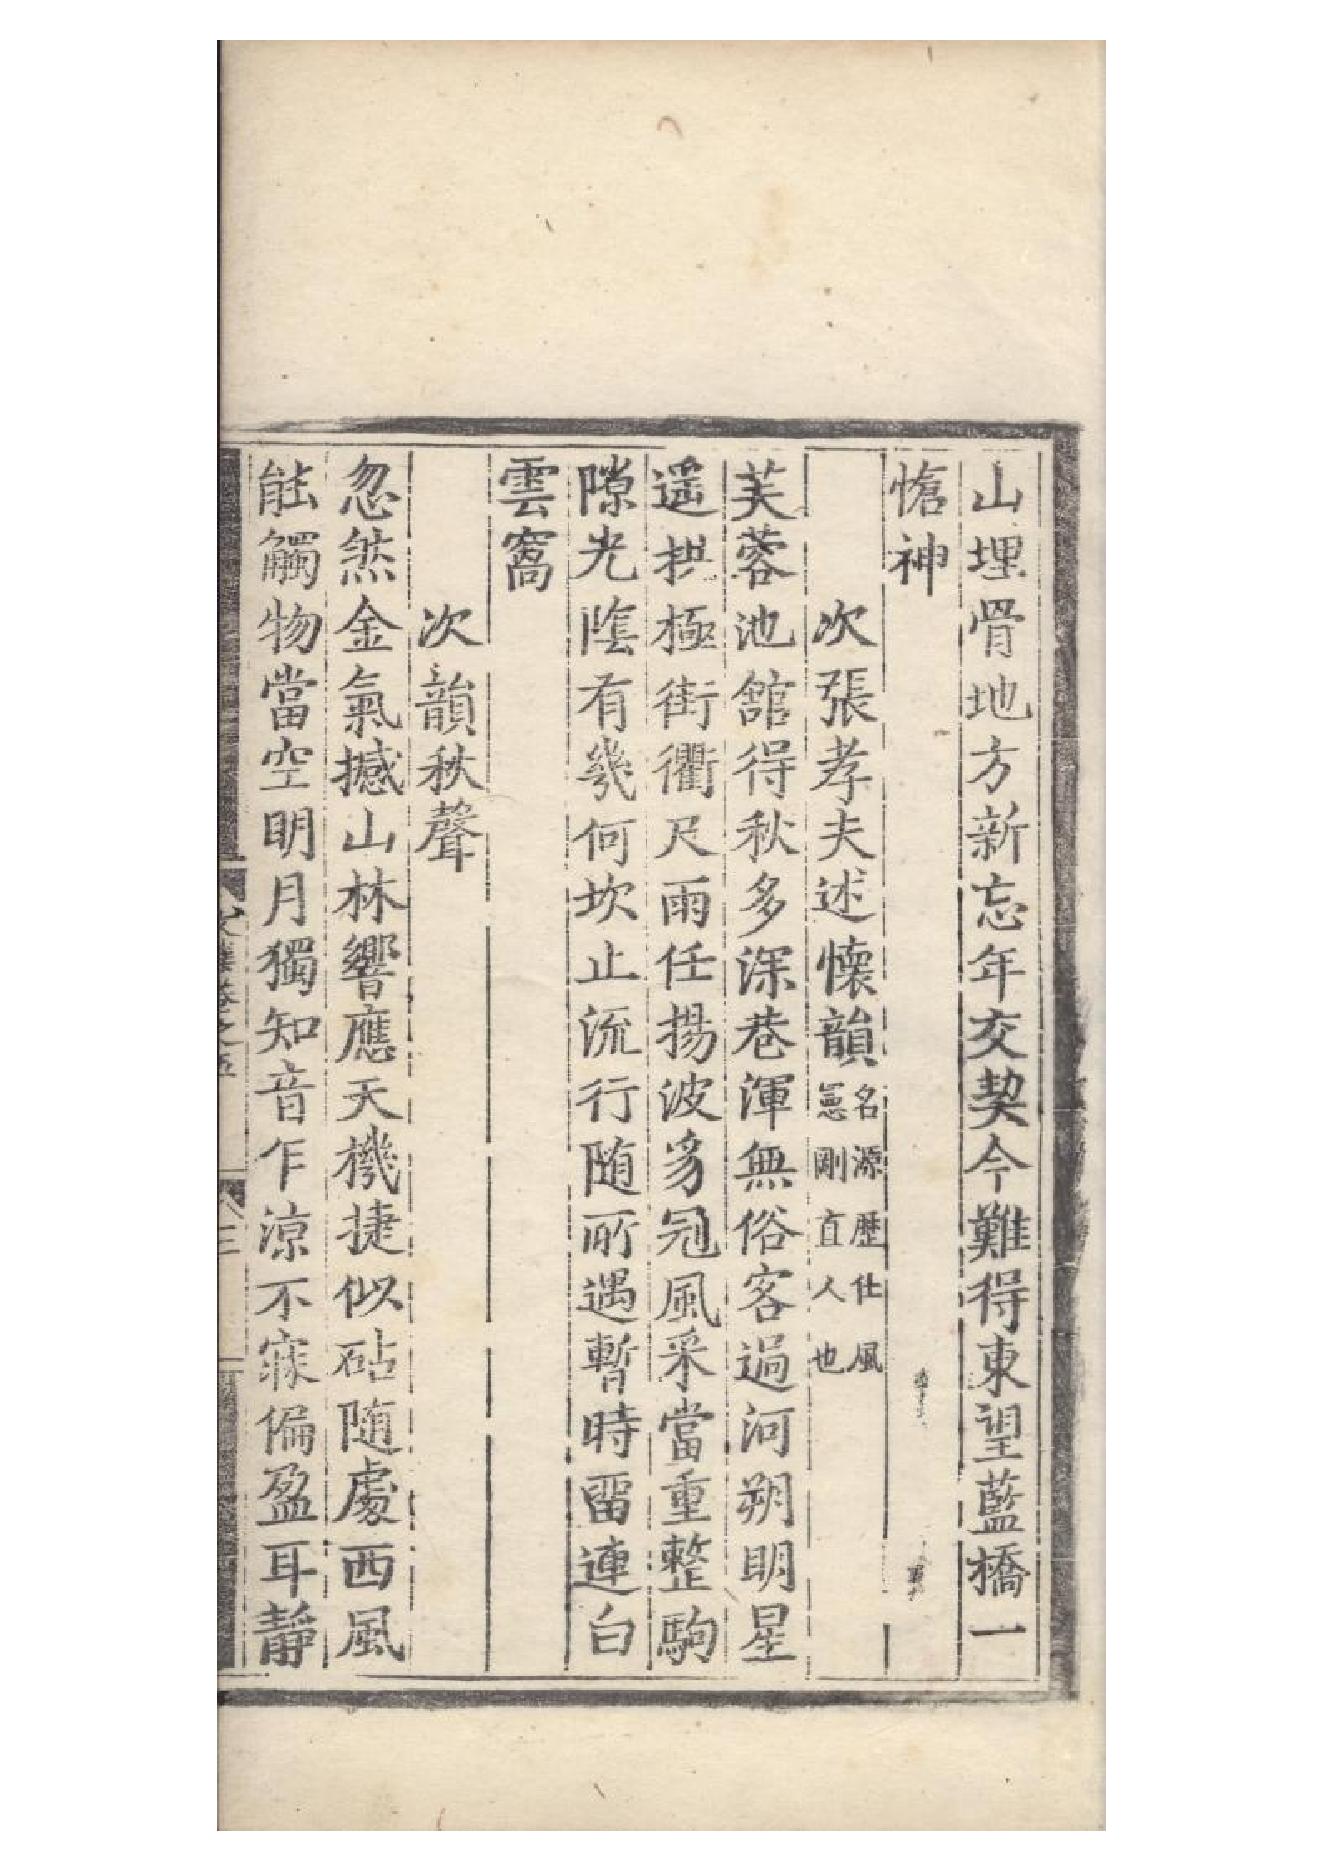 山埋骨地方新忘年交契今難得東望藍橋一
愴神
次張孝夫述懷韻名源歷仕風憲剛直人也
芙蓉池舘得秋多深巷渾無俗客過河朔明星
遥拱極街衢尺雨任揚波豸冠風采當重整駒
隙光隂有幾何坎止流行随所遇暫時留連白
雲窩
次韻秋聲
忽然金氣撼山林響應天機捷似砧随處西風
能觸物當空明月獨知音乍涼不寐偏盈耳靜
卷之五
三